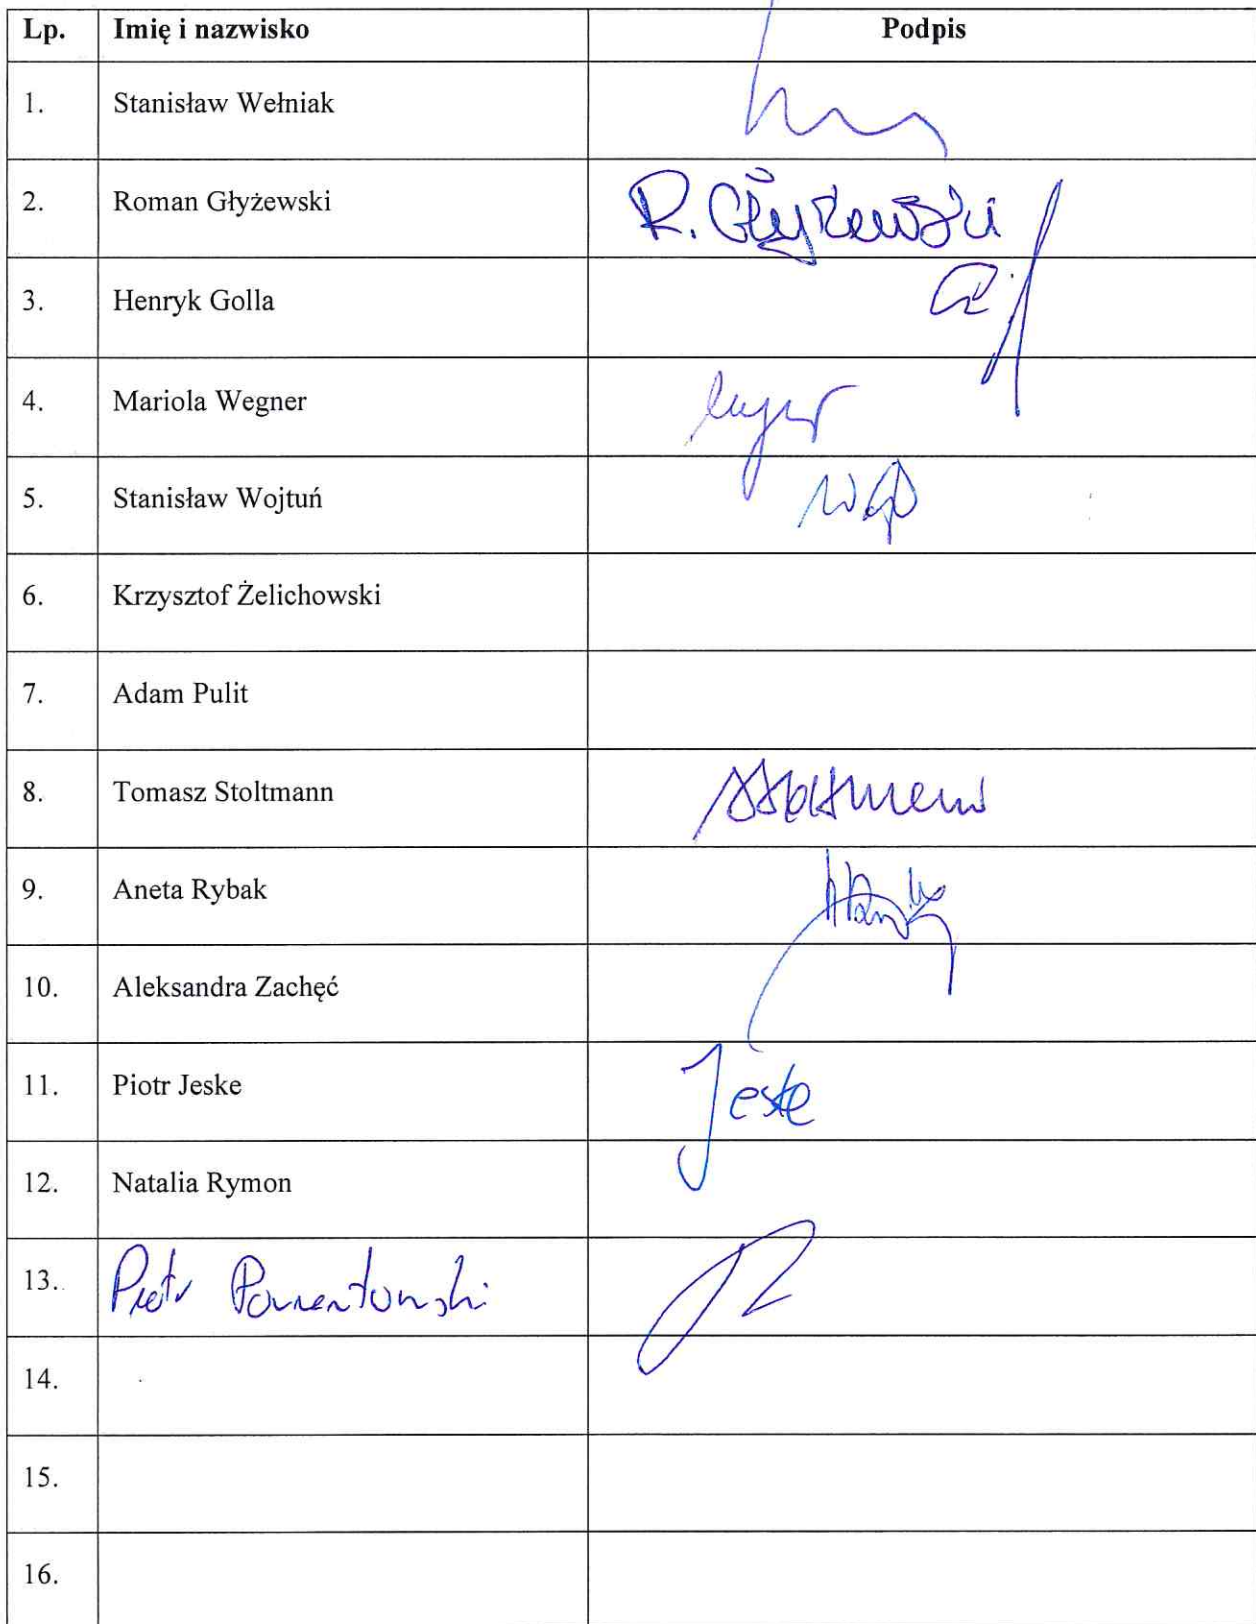 Lp. Imię i nazwisko Podpis
1. Stanisław Wełniak
2. Roman Głyżewski R. Głyżewski
3. Henryk Golla
4. Mariola Wegner
5. Stanisław Wojtuń
6. Krzysztof Żelichowski
7. Adam Pulit
8. Tomasz Stoltmann
9. Aneta Rybak
10. Aleksandra Zachęć
11. Piotr Jeske Jeske
12. Natalia Rymon
13. Piotr
14.
15.
16.